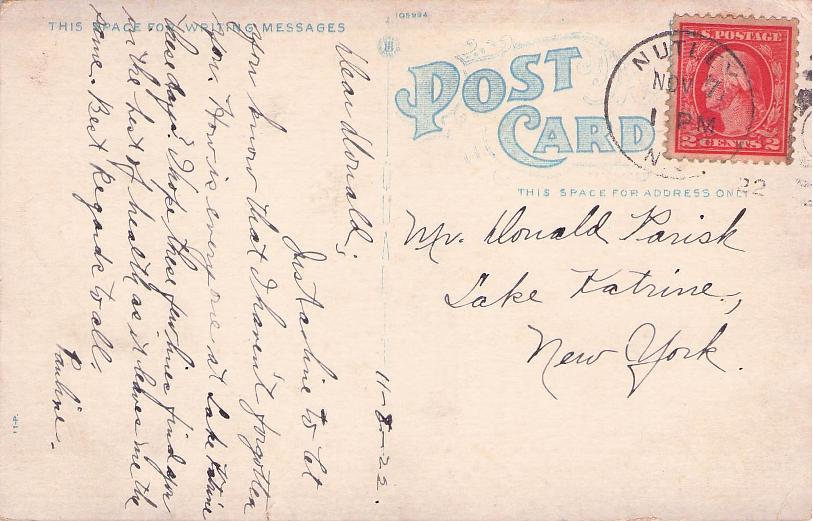 105994
THIS SPACE FOR WRITING MESSAGES
POST
CARD
THIS SPACE FOR ADDRESS ONLY
U.S. POSTAGE
2 CENTS 2
NUTLEY
NOV 7
1 PM
N.J.
22
Mr. Donald Parish
Lake Katrine,
New York.
11-8-22.
Dear Donald;
Just a line to let
you know that I haven't forgotten
you. How is everyone at Lake Katrine
these days? I hope these few lines find you
in the best of health as it leaves me the
same. Best Regards to all.
Pauline.